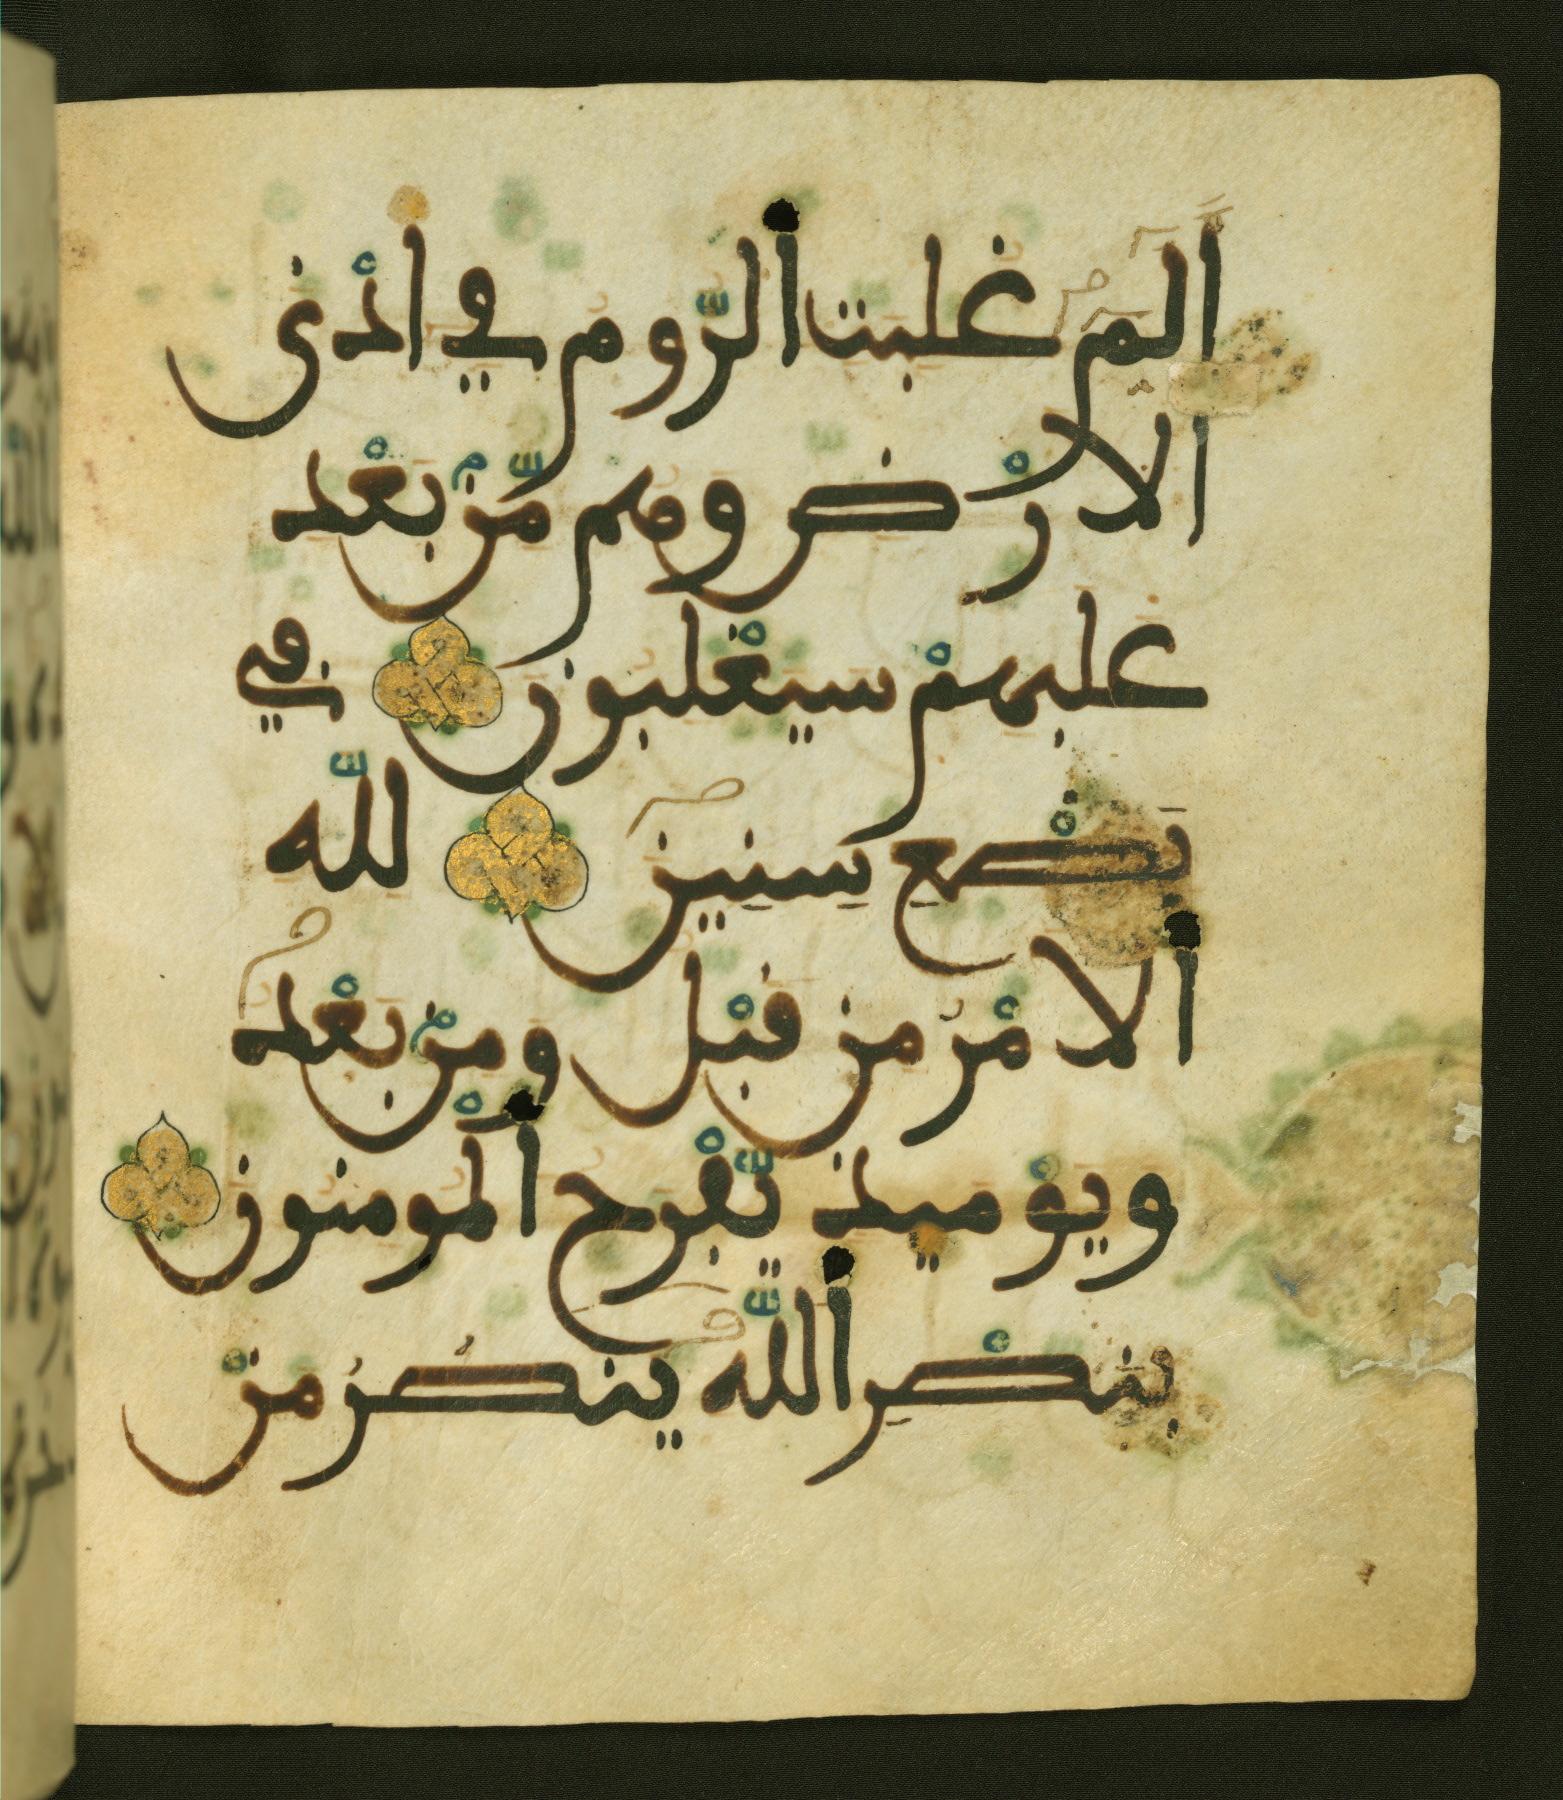 الم غلبت الرّوم في ادْنى
الارْض وهم مّنۢ بعْد
غلبهمْ سيغْلبون في
بضْعِ سِنِين للّه
الامْرُ من قبْل ومنۢ بعْد
ويوْميذ يّفْرح الْمومنون
بنصْرِ اللّه ينصُرُ منْ